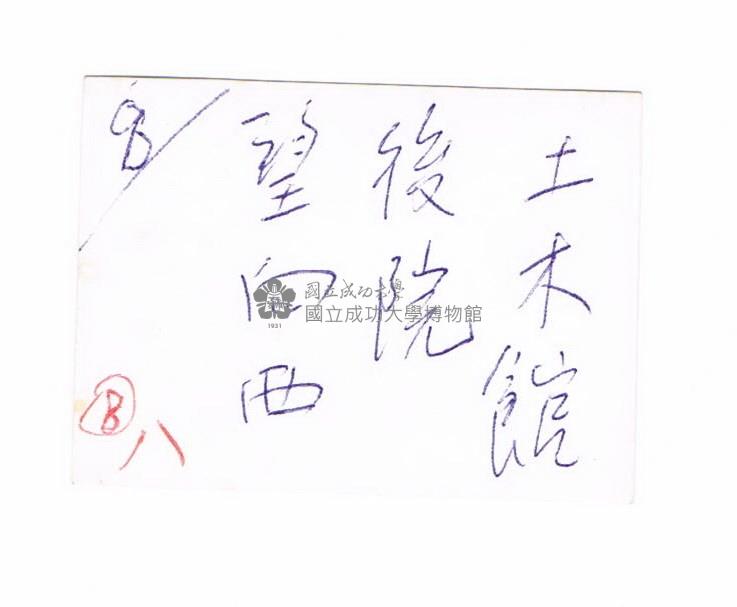 土木館
後院
望向西
8
Ⓑ
八
國立成功大學
國立成功大學博物館
1931